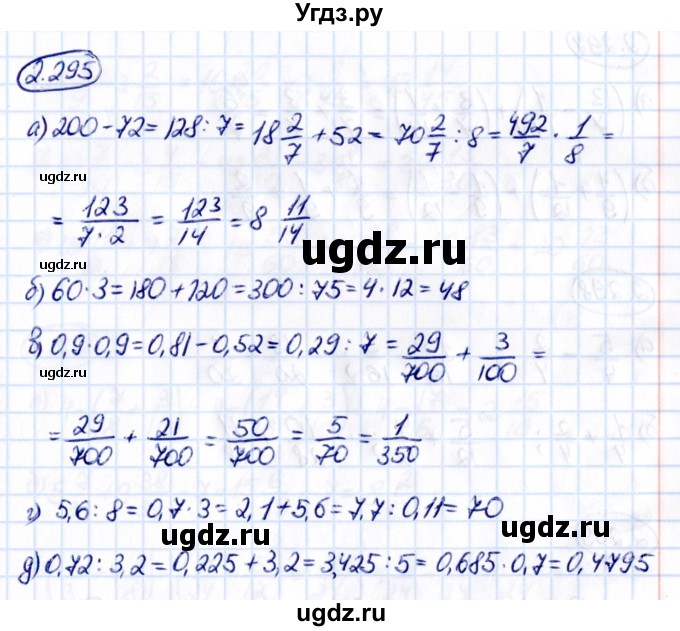 Угдз.ру
2.295
а) 200 - 72 = 128 : 7 = 18 2/7 + 52 = 70 2/7 : 8 = 492/7 · 1/8 =
ugdz.ru
= 123/(7 · 2) = 123/14 = 8 11/14
ugdz.ru
ugdz.ru
б) 60 · 3 = 180 + 120 = 300 : 75 = 4 · 12 = 48
в) 0,9 · 0,9 = 0,81 - 0,52 = 0,29 : 7 = 29/700 + 3/100 =
ugdz.ru
= 29/700 + 21/700 = 50/700 = 5/70 = 1/350
г) 5,6 : 8 = 0,7 · 3 = 2,1 + 5,6 = 7,7 : 0,11 = 70
ugdz.ru
д) 0,72 : 3,2 = 0,225 + 3,2 = 3,425 : 5 = 0,685 · 0,7 = 0,4795
ugdz.ru